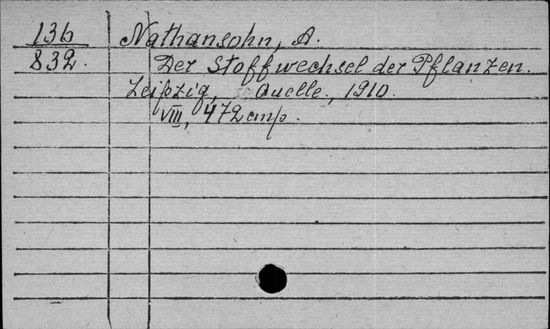 136 Nathansohn, A.
832. Der Stoffwechsel der Pflanzen.
Leipzig, Quelle, 1910.
VIII, 472 стр.